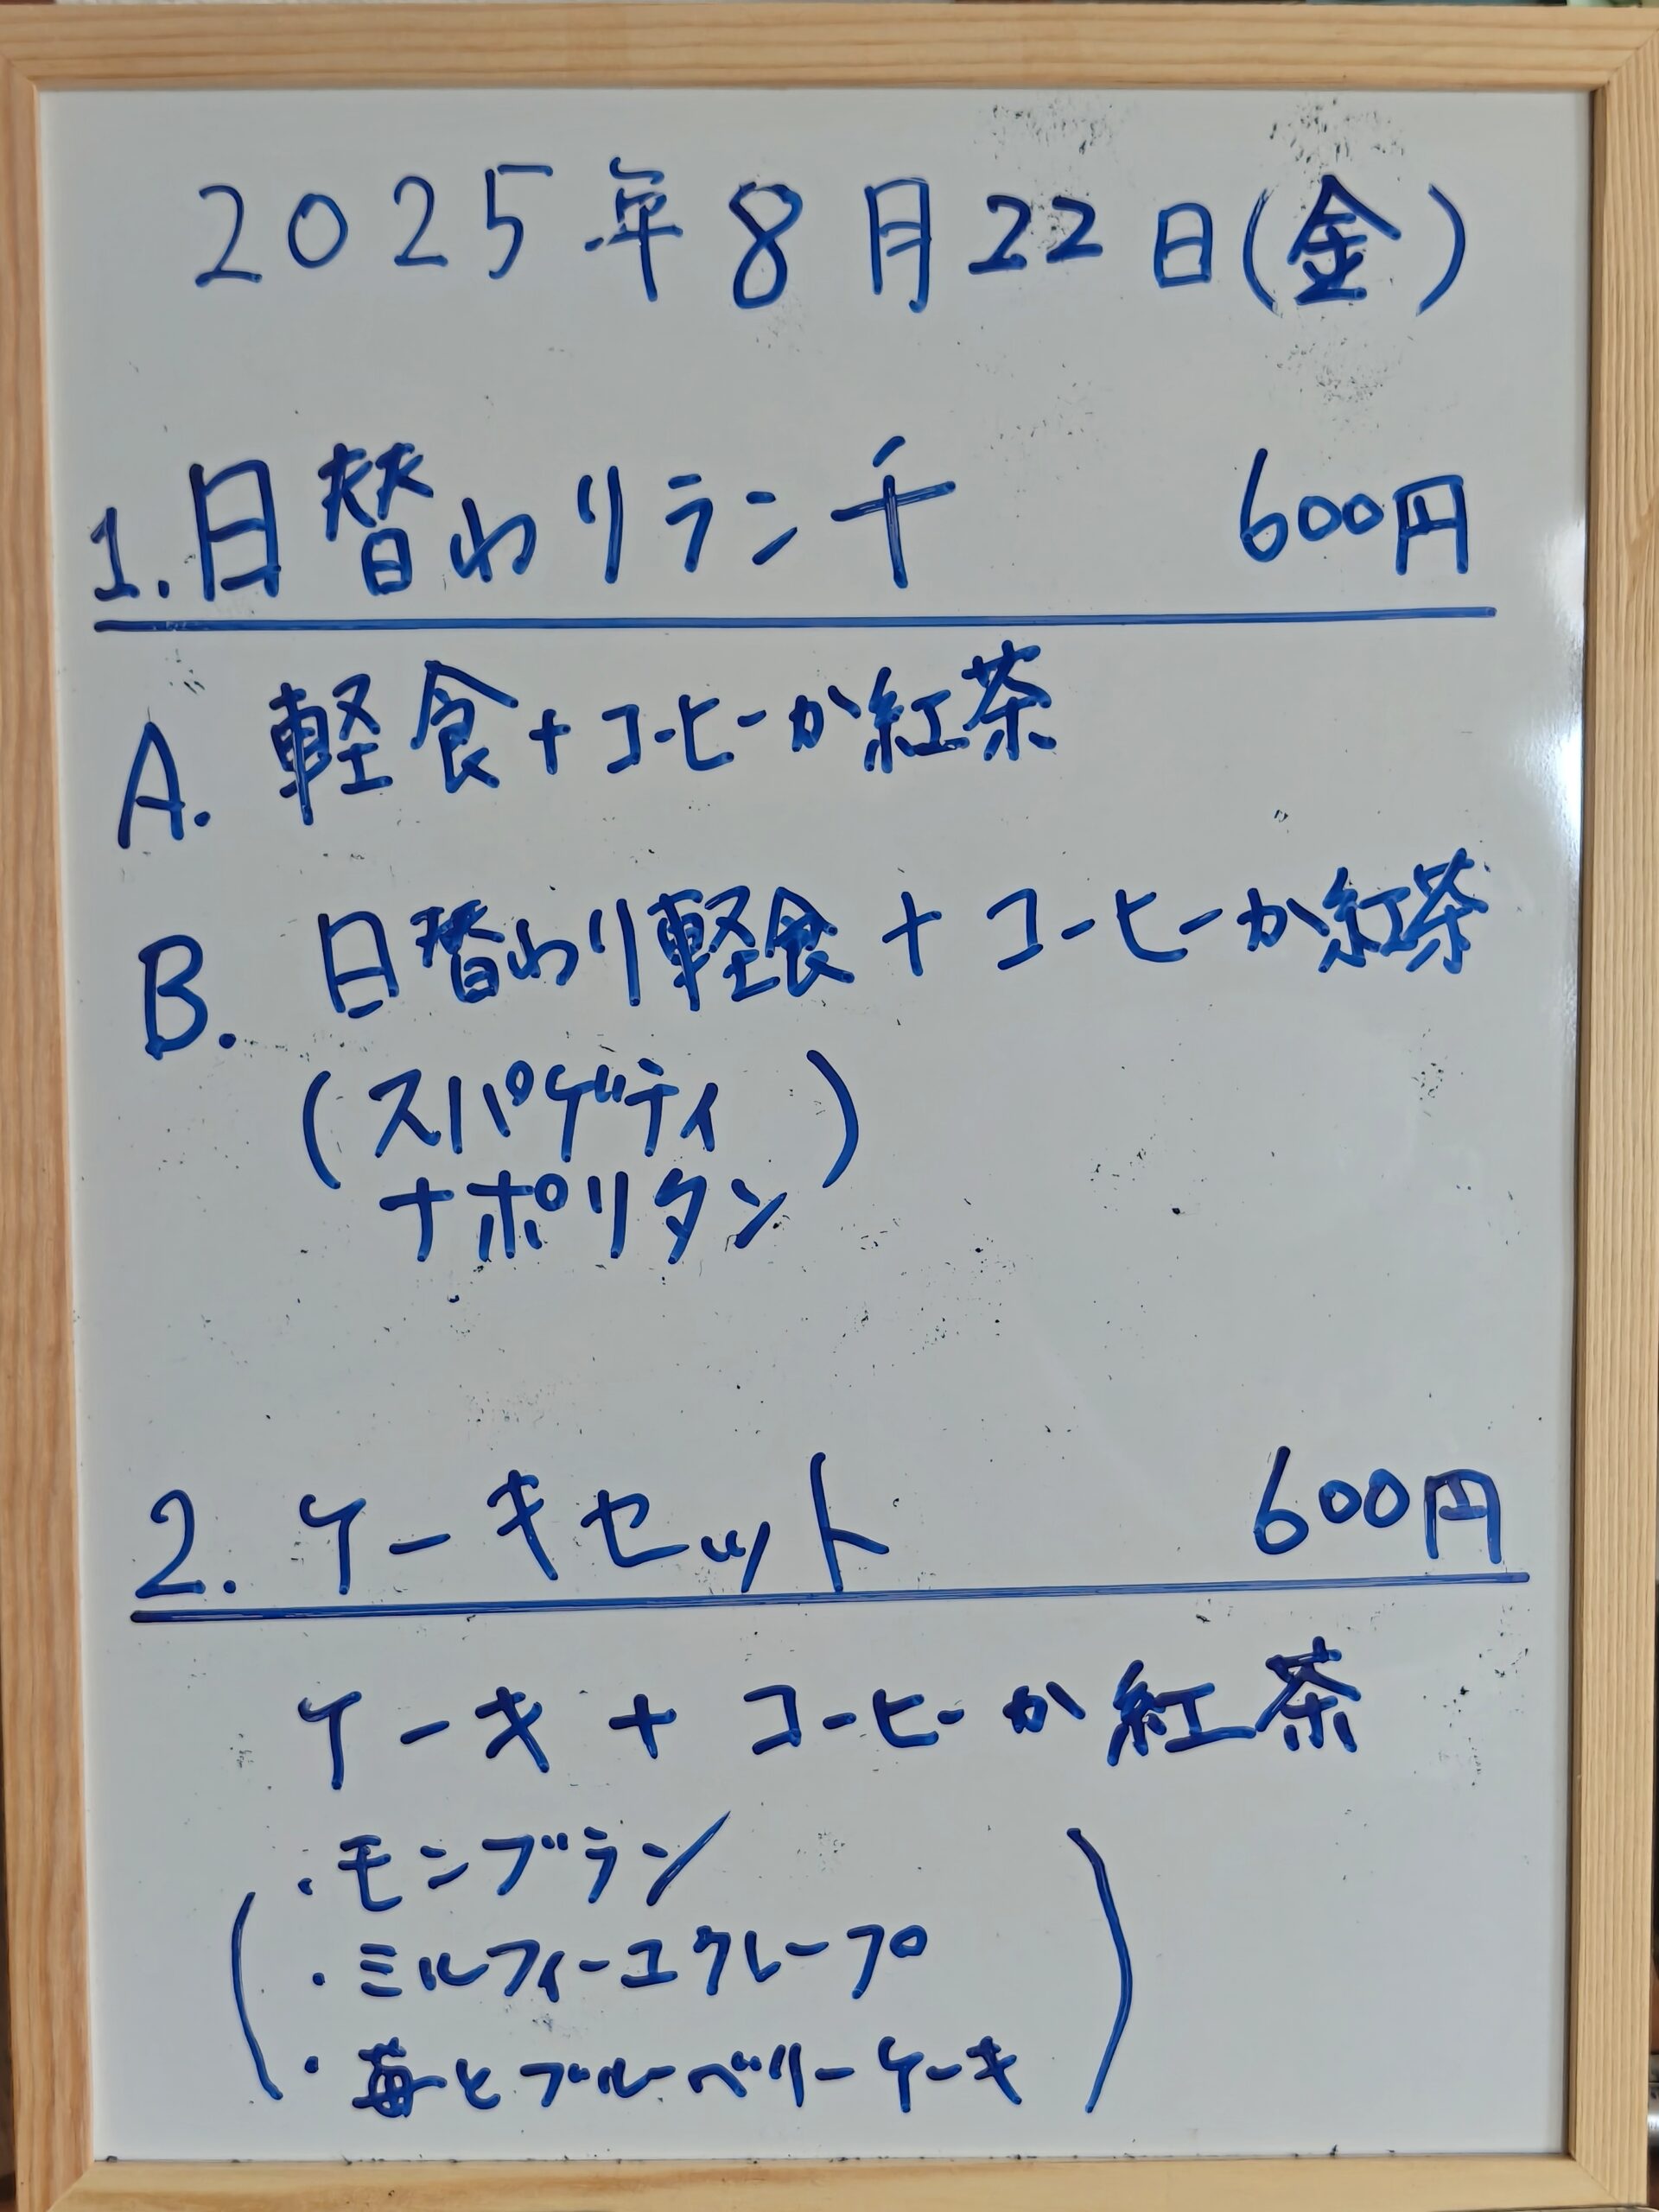 2025年8月22日(金)
1.日替わりランチ 600円
A. 軽食+コーヒーか紅茶
B. 日替わり軽食+コーヒーか紅茶
(スパゲティ
ナポリタン)
2. ケーキセット 600円
ケーキ+コーヒーか紅茶
(・モンブラン
・ミルフィーユクレープ
・苺とブルーベリーケーキ)